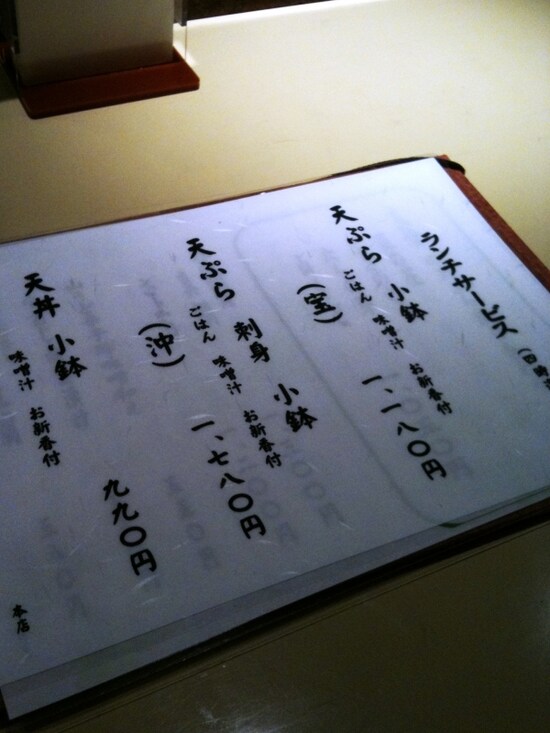 ランチサービス
天ぷら 小鉢
ごはん 味噌汁 お新香付
(宝) 一、一八〇円
天ぷら 刺身 小鉢
ごはん 味噌汁 お新香付
(沖) 一、七八〇円
天丼 小鉢
味噌汁 お新香付
九九〇円
本店